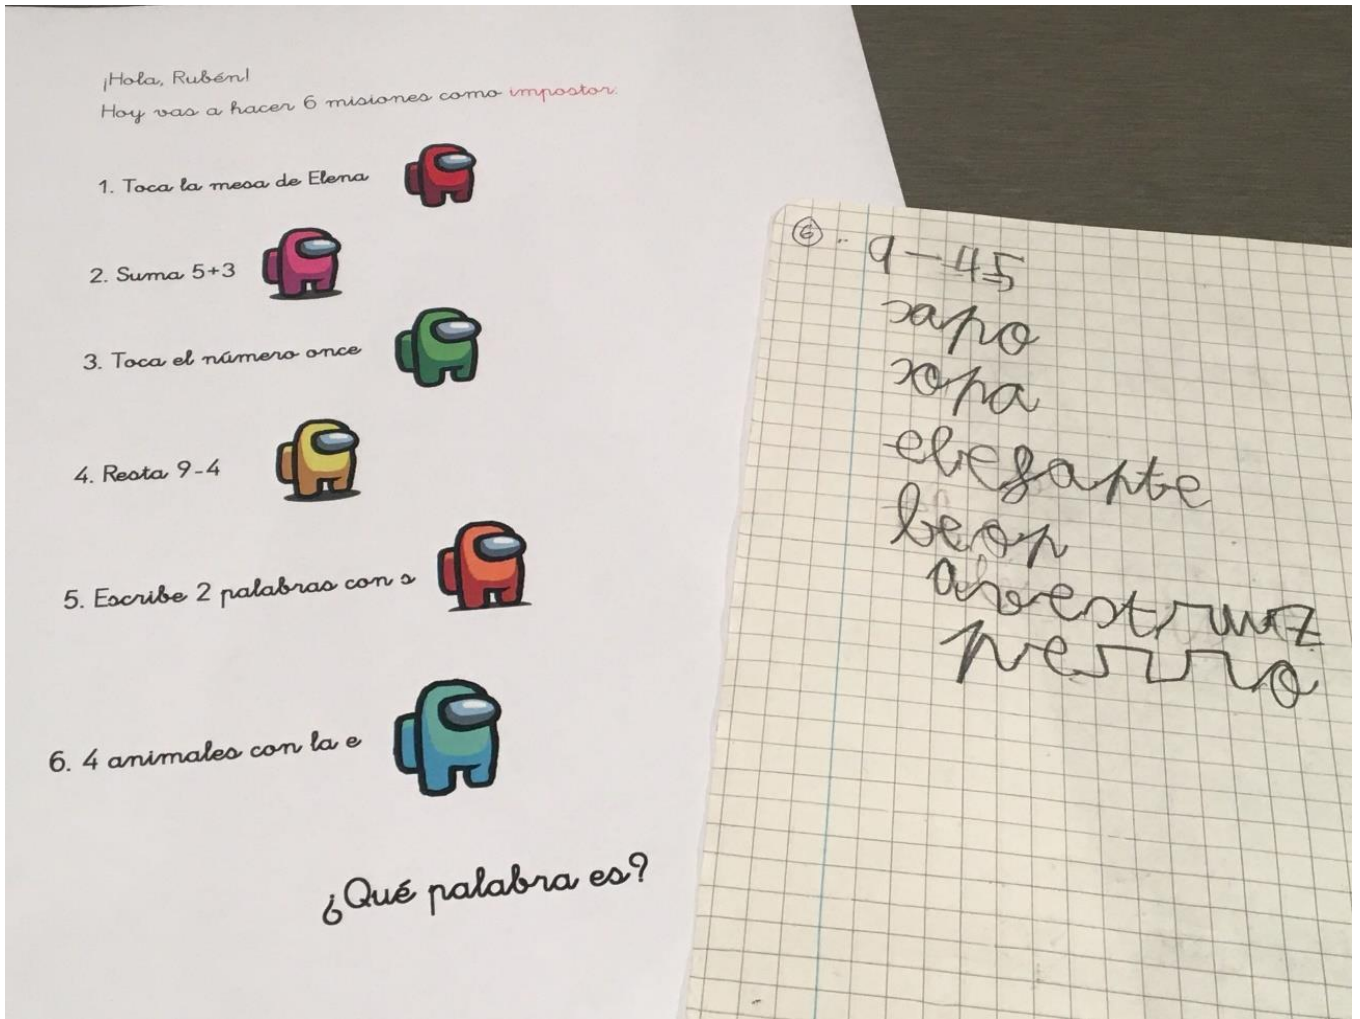 ¡Hola, Rubén!
Hoy vas a hacer 6 misiones como impostor.
1. Toca la mesa de Elena
2. Suma 5+3
3. Toca el número once
4. Resta 9-4
5. Escribe 2 palabras con s
6. 4 animales con la e
¿Qué palabra es?
6 9-45
sapo
sopa
elefante
leon
avestruz
perro